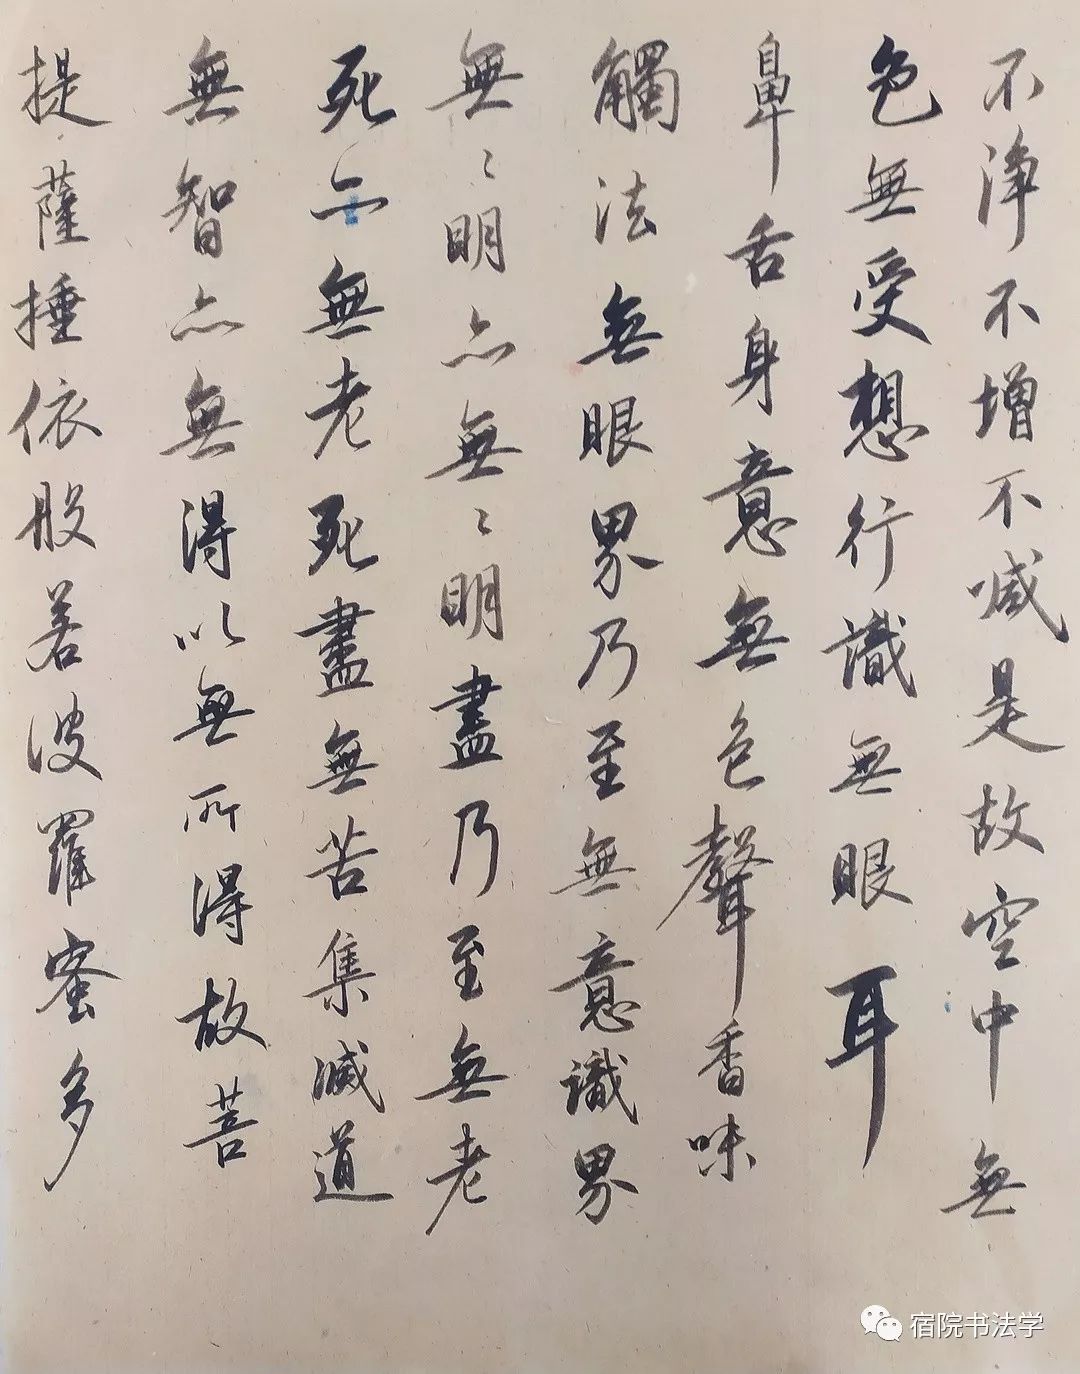 不淨不增不減是故空中無
色無受想行識無眼耳
鼻舌身意無色聲香味
觸法無眼界乃至無意識界
無〻明亦無〻明盡乃至無老
死亦無老死盡無苦集滅道
無智亦無得以無所得故菩
提薩埵依般若波羅蜜多
宿院书法学